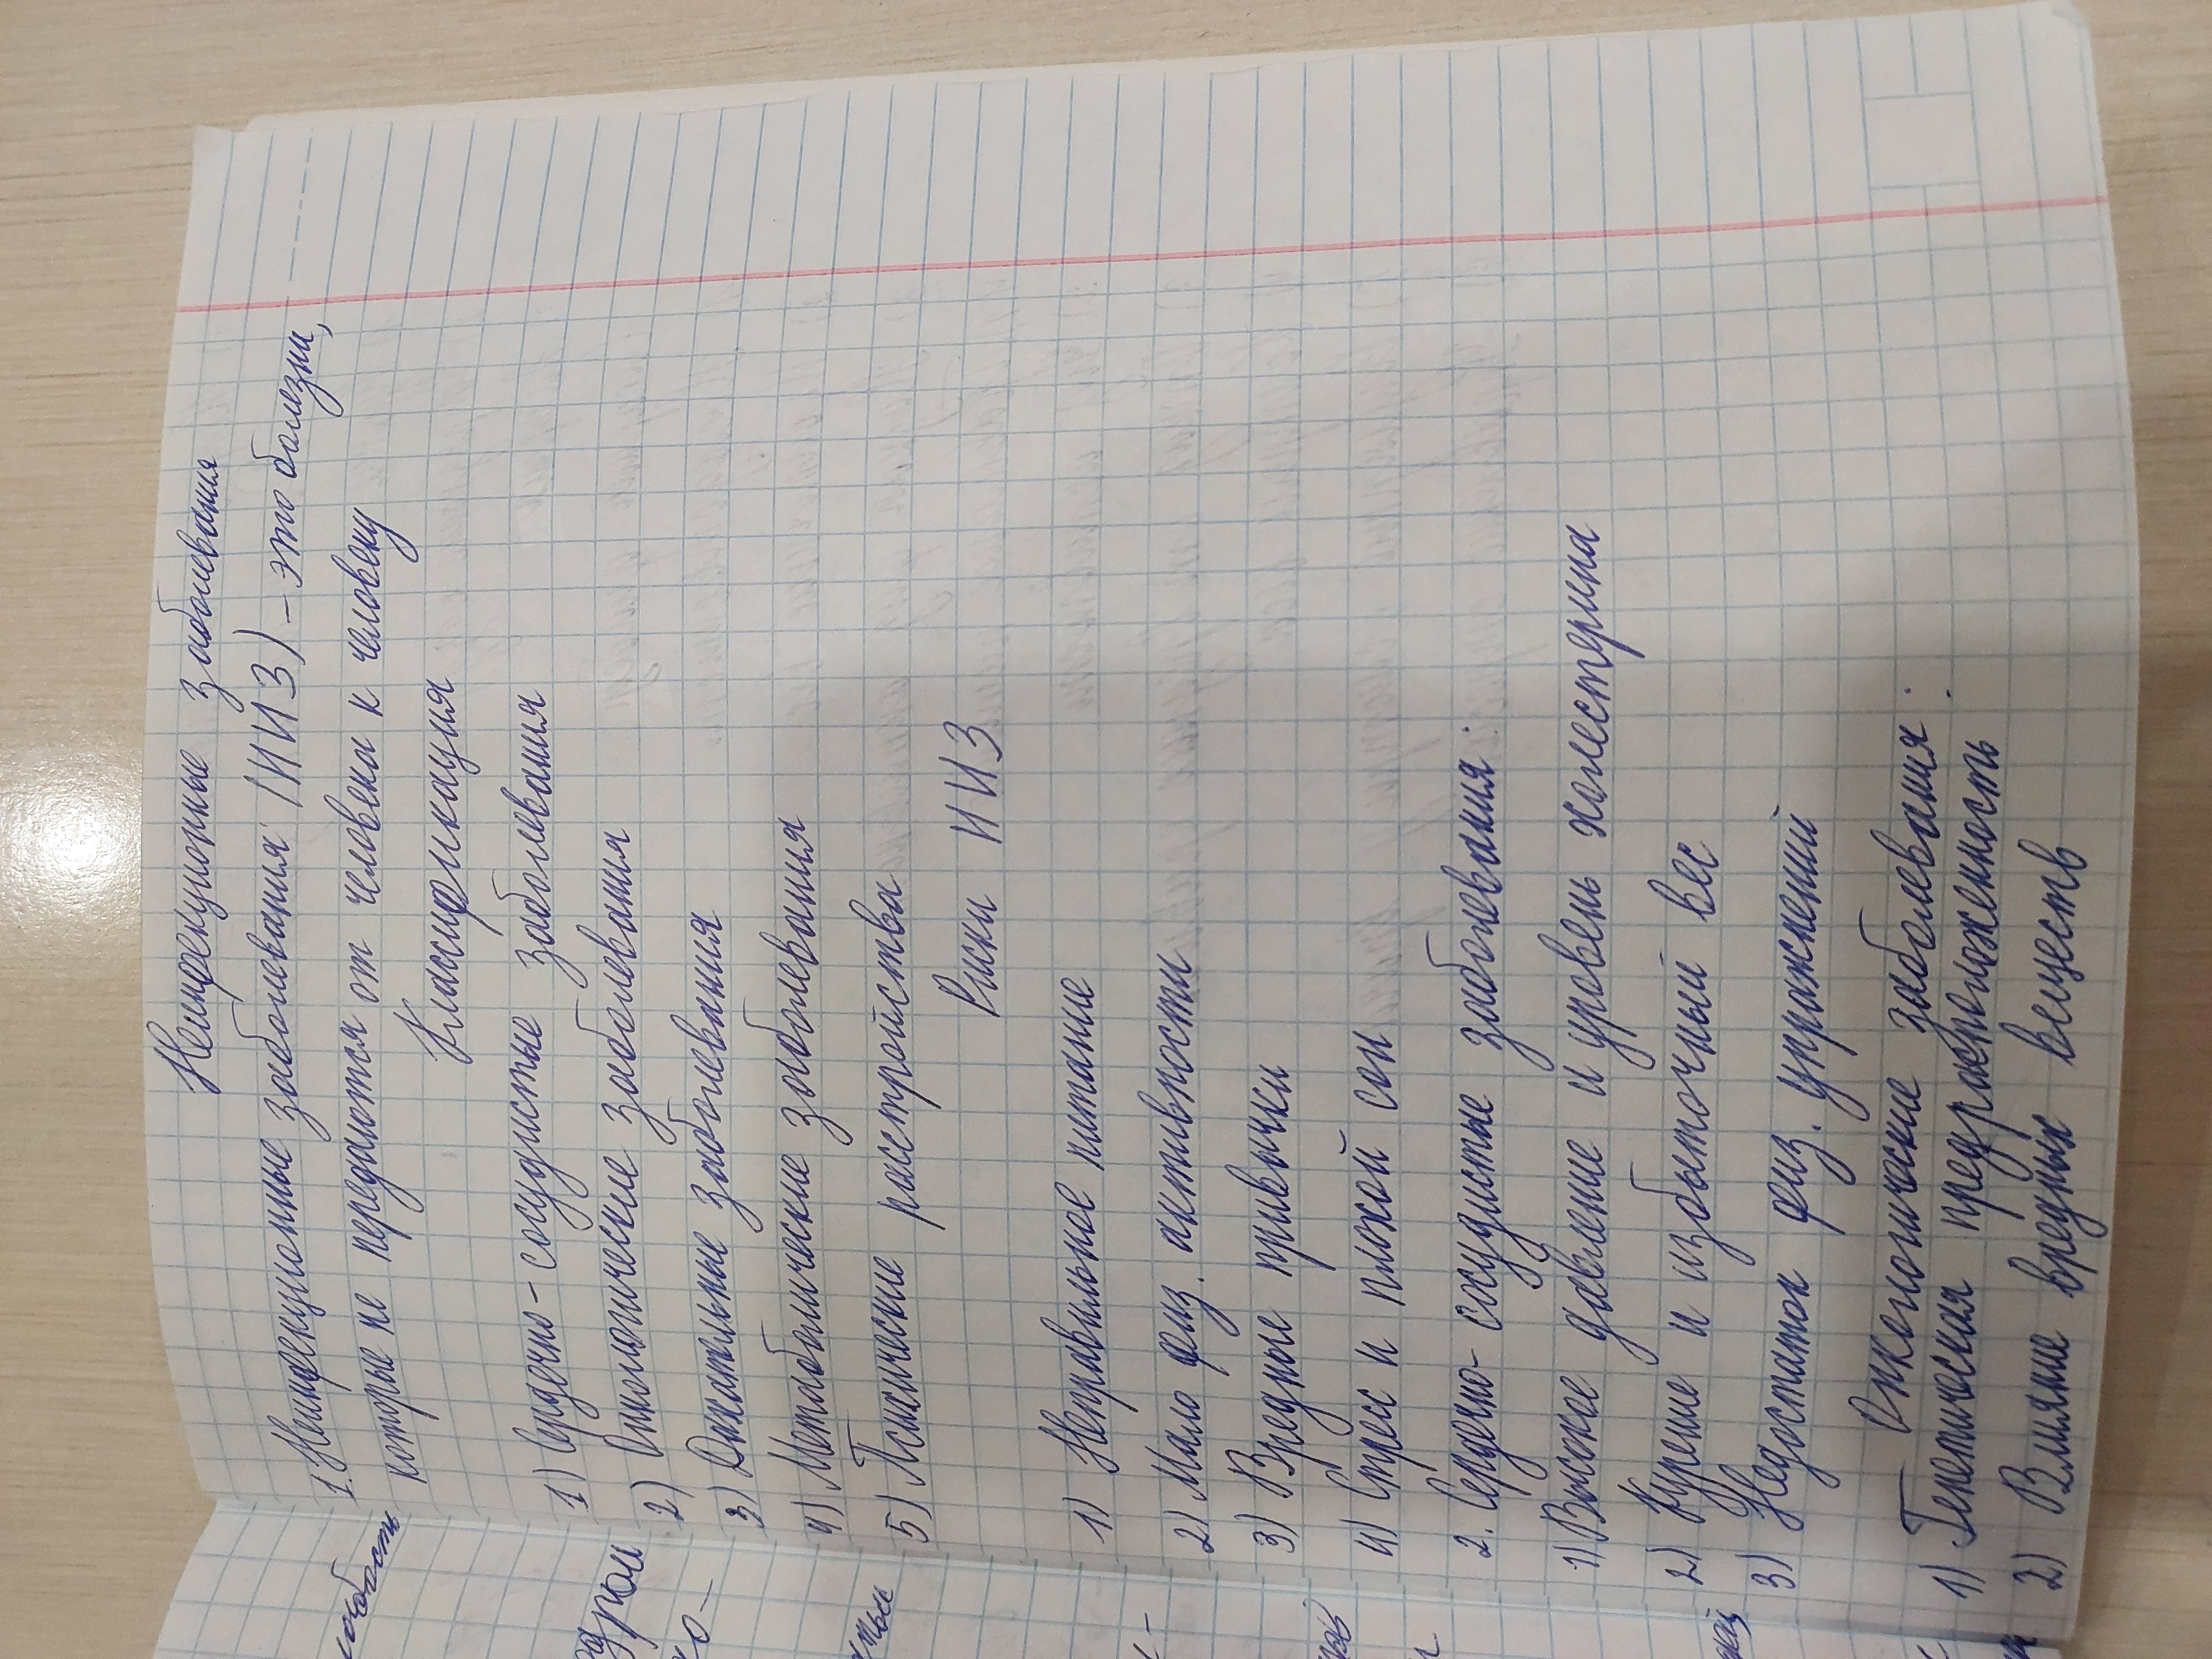 Неинфекционные заболевания
1. Неинфекционные заболевания (НИЗ) – это болезни,
которые не передаются от человека к человеку
Классификация
1) Сердечно-сосудистые заболевания
2) Онкологические заболевания
3) Дыхательные заболевания
4) Метаболические заболевания
5) Психические расстройства
Риски НИЗ
1) Неправильное питание
2) Мало физ. активности
3) Вредные привычки
4) Стресс и плохой сон
2. Сердечно-сосудистые заболевания:
1) Высокое давление и уровень холестерина
2) Курение и избыточный вес
3) Недостаток физ. упражнений
Онкологические заболевания:
1) Генетическая предрасположенность
2) Влияние вредных веществ